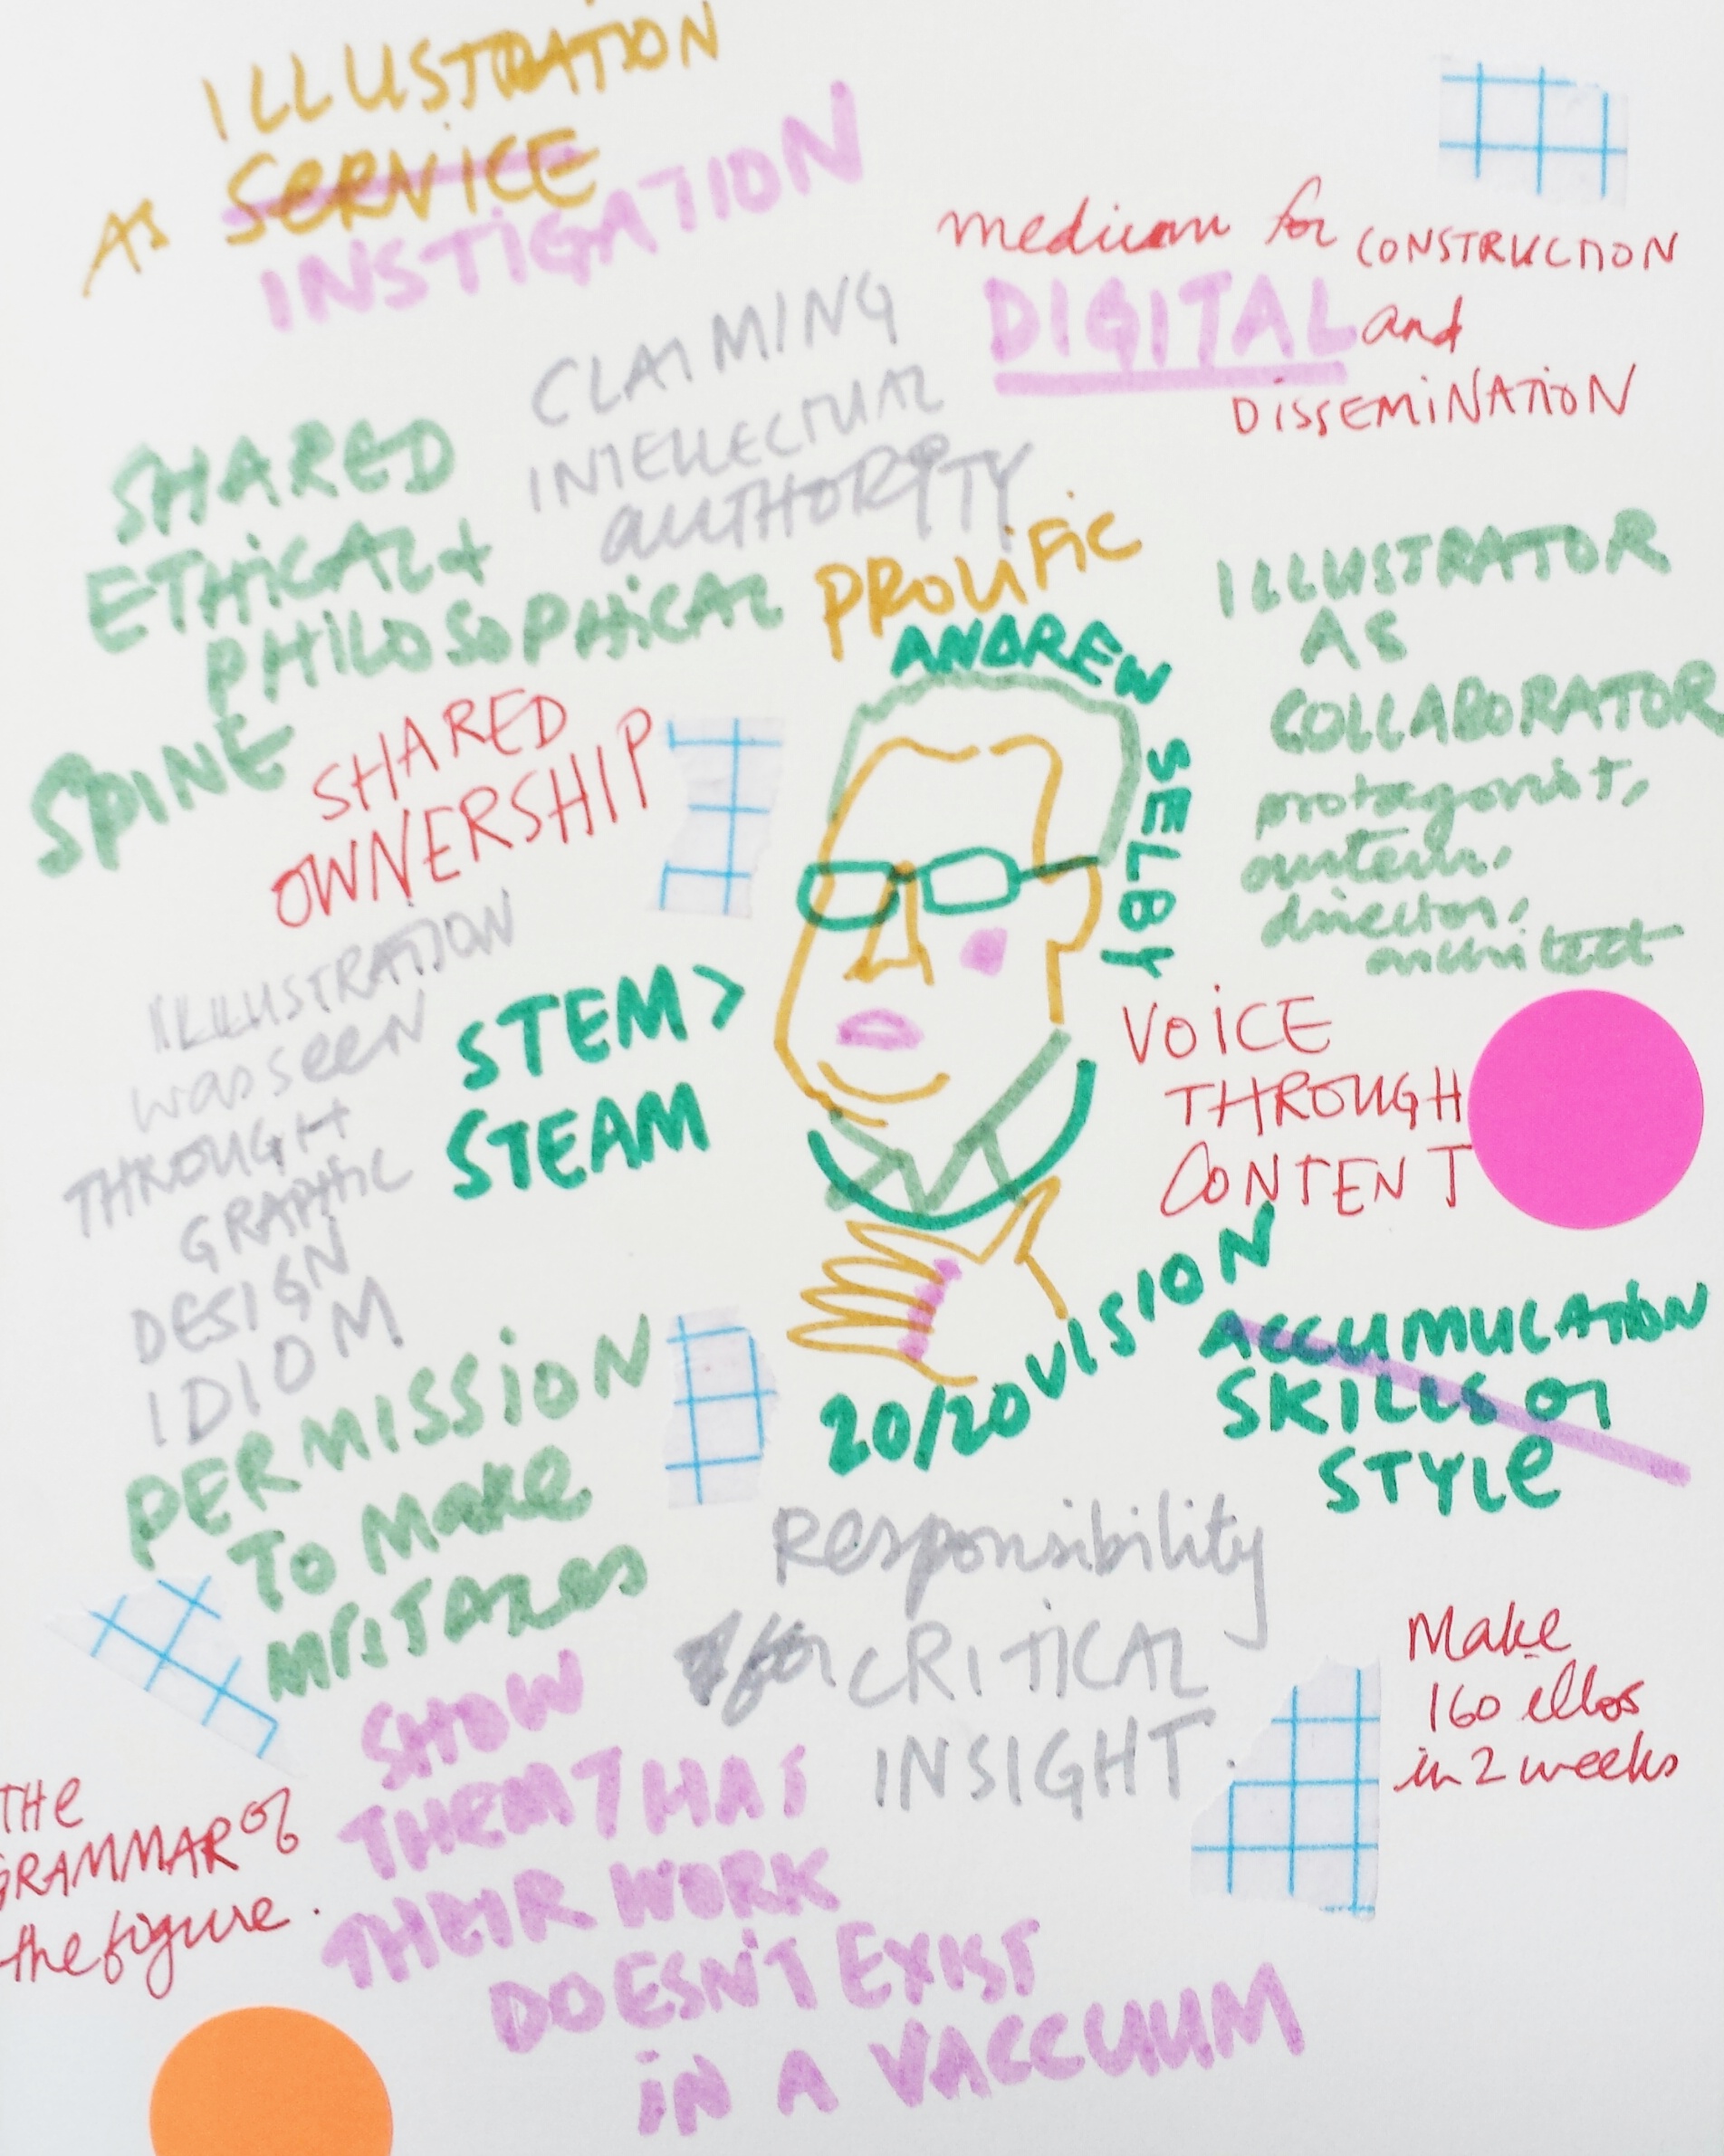 ILLUSTRATION
AS SERVICE
INSTIGATION
medium for CONSTRUCTION
DIGITAL and
DISSEMINATION
CLAIMING
INTELLECTUAL
AUTHORITY
SHARED
ETHICAL +
PHILOSOPHICAL
SPINE
PROLIFIC
ANDREW
SELBY
ILLUSTRATOR
AS
COLLABORATOR
protagonist,
auteur,
director,
architect
SHARED
OWNERSHIP
ILLUSTRATION
was seen
THROUGH
GRAPHIC
DESIGN
IDIOM
STEM >
STEAM
VOICE
THROUGH
CONTENT
20/20 VISION
ACCUMULATION
SKILLS or
STYLE
PERMISSION
TO Make
MISTAKES
Responsibility
for CRITICAL
INSIGHT.
Make
160 illos
in 2 weeks
THE
GRAMMAR of
the figure.
SHOW
THEM THAT
THEIR WORK
DOESN'T EXIST
IN A VACCUUM